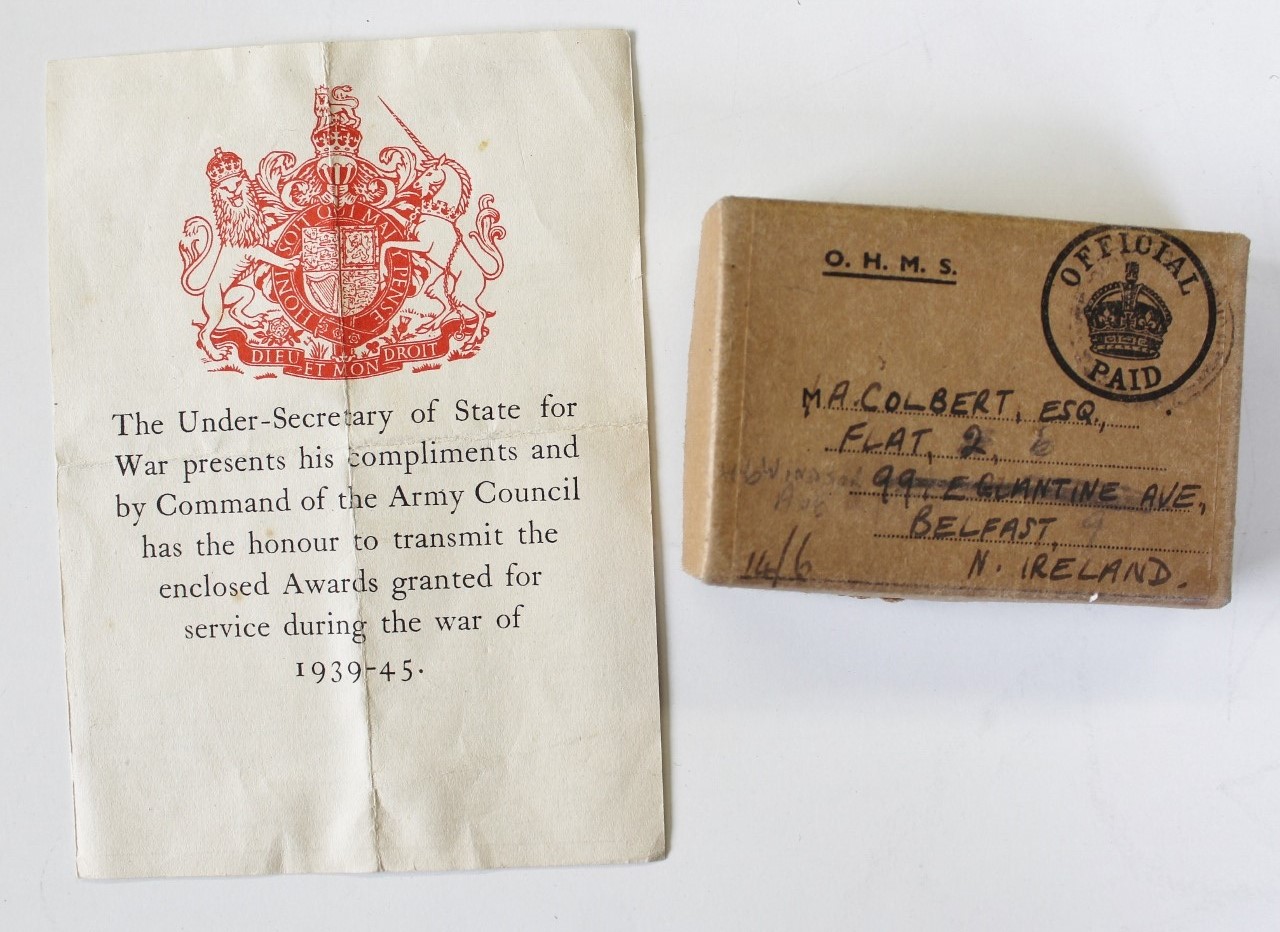 HONI SOIT QUI MAL Y PENSE
DIEU ET MON DROIT
The Under-Secretary of State for
War presents his compliments and
by Command of the Army Council
has the honour to transmit the
enclosed Awards granted for
service during the war of
1939-45.
O. H. M. S.
OFFICIAL
PAID
MA. COLBERT, ESQ.,
FLAT, 2,
99, EGLANTINE AVE,
BELFAST, 9
N. IRELAND.
14/6